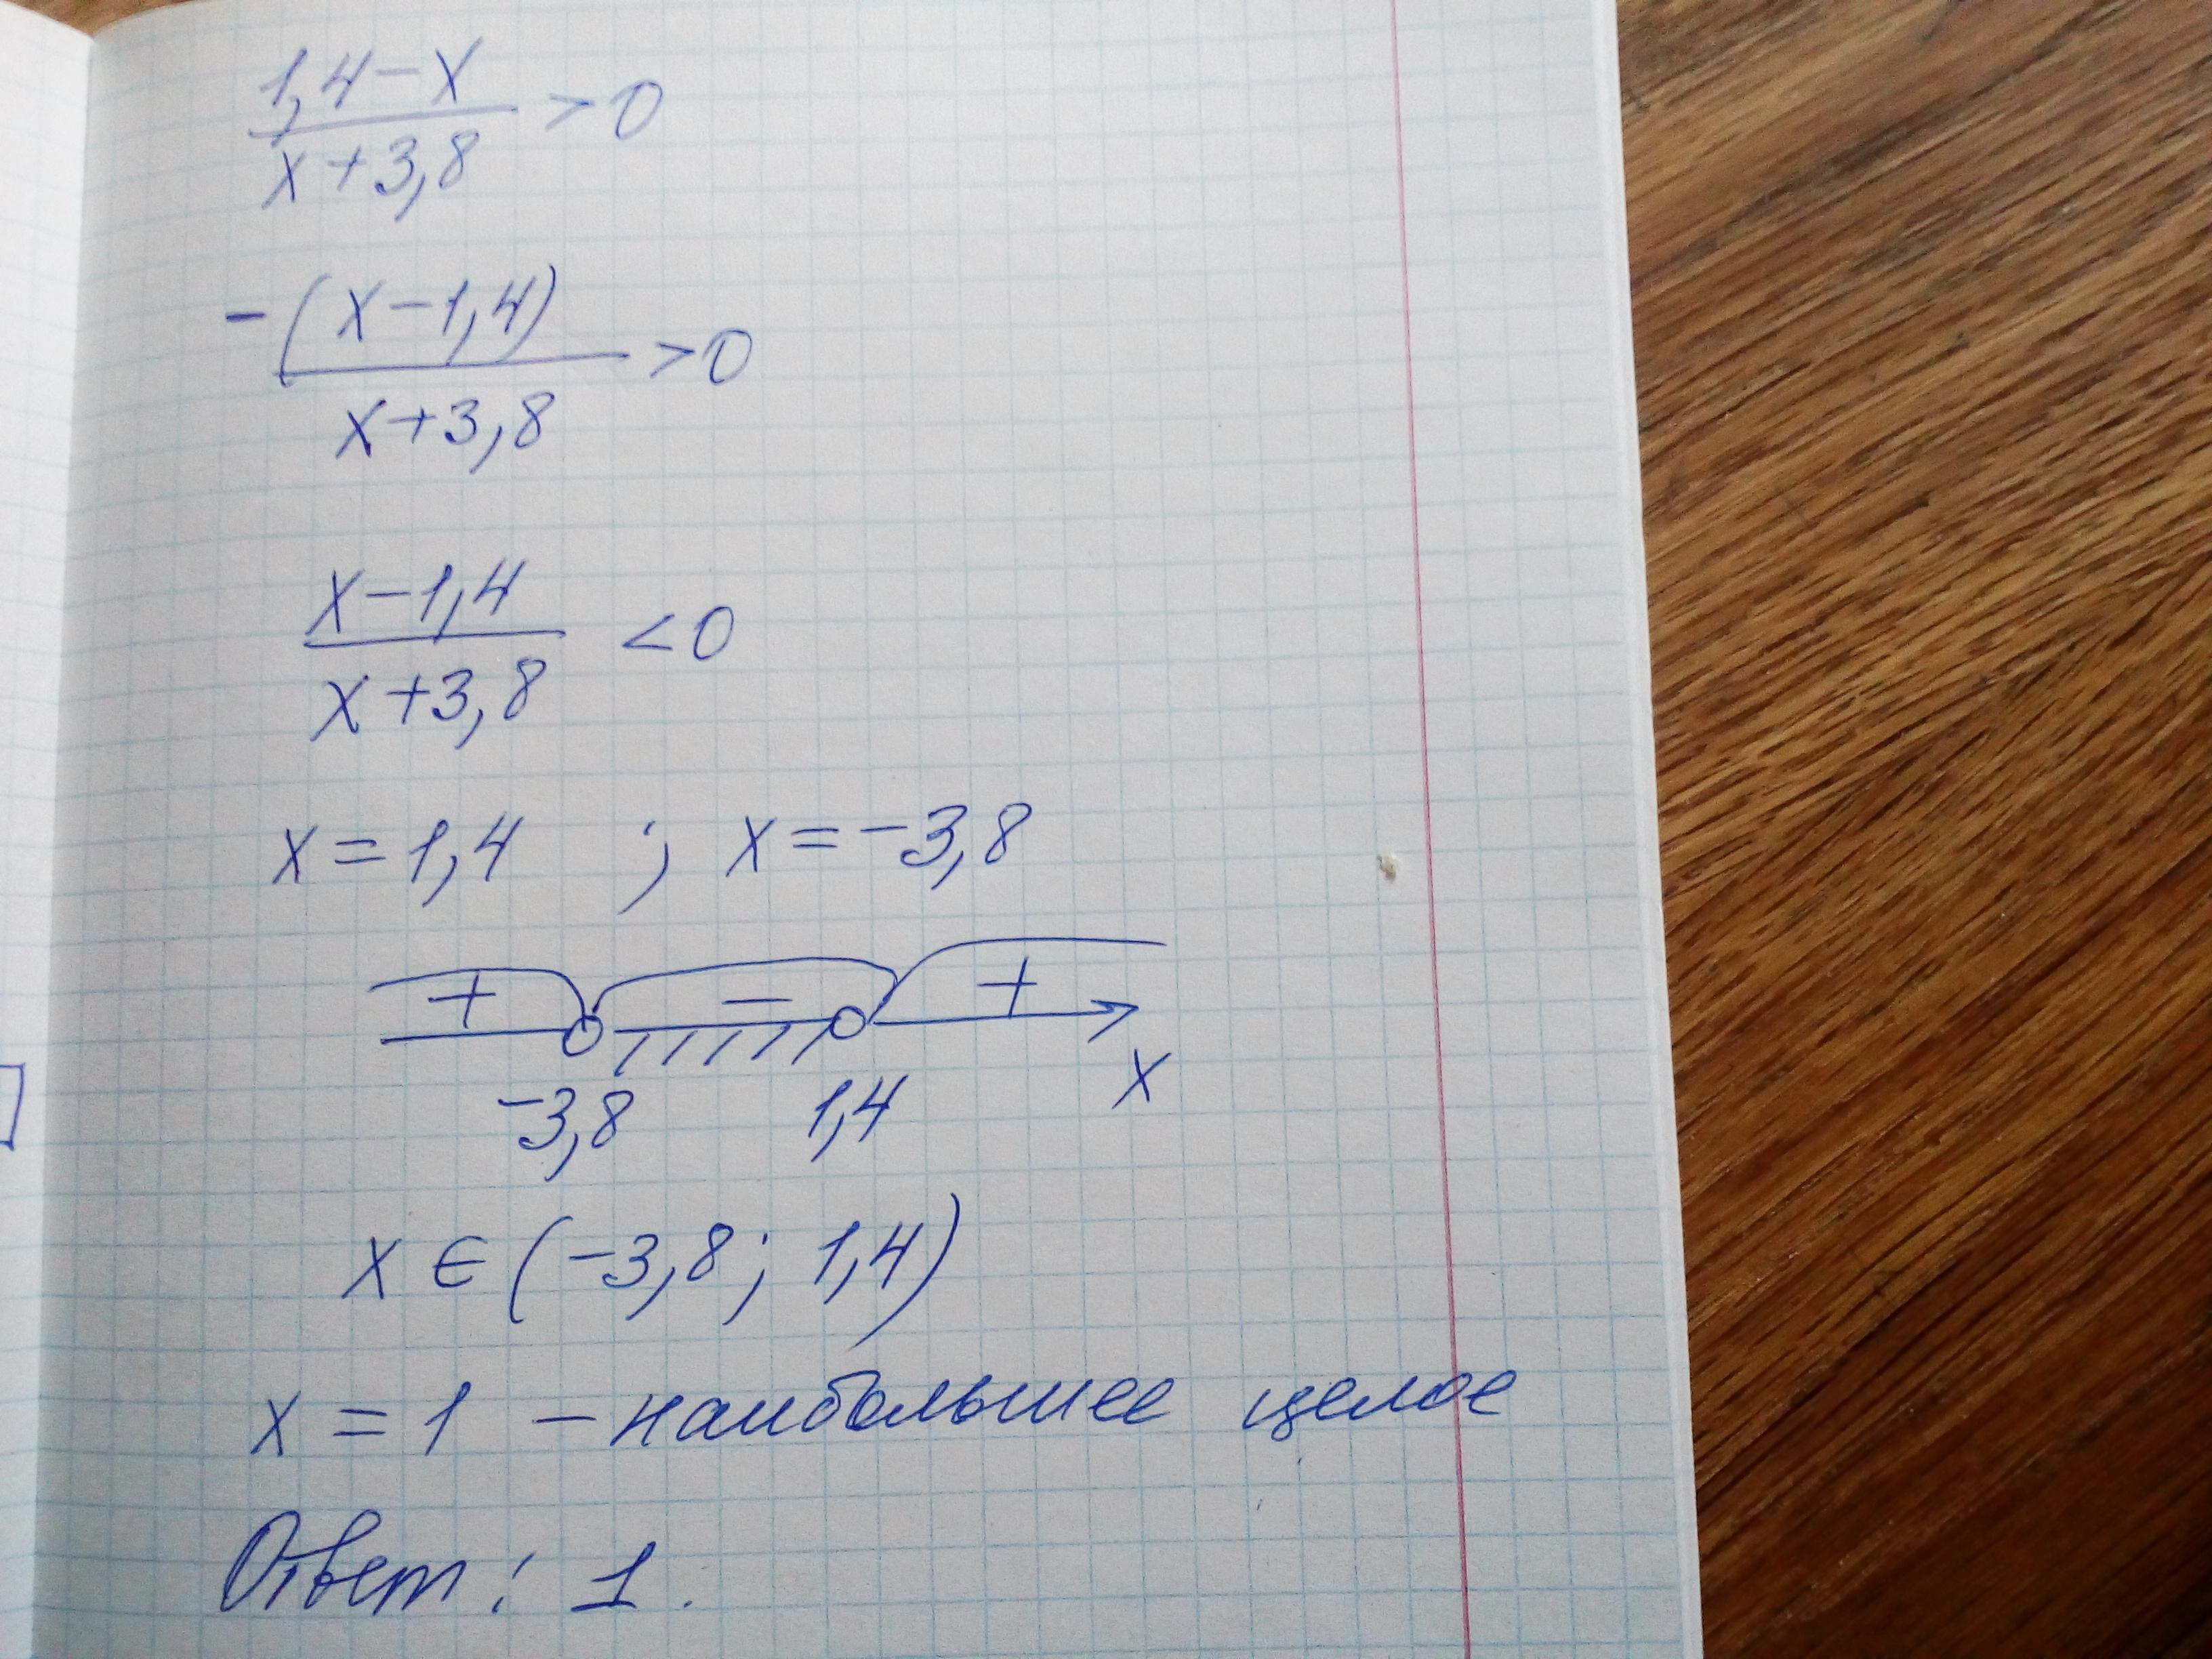 1,4-x
x+3,8 >0
-(x-1,4)
x+3,8 >0
x-1,4
x+3,8 <0
x=1,4 ; x=-3,8
+ - +
-3,8 1,4 x
x∈(-3,8; 1,4)
x=1 - наибольшее целое
Ответ: 1.